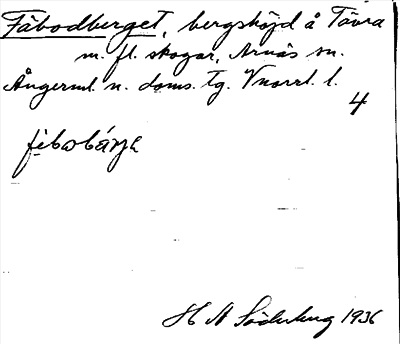 Fäbodberget, bergshöjd å Tävra
m. fl. skogar, Arnäs sn.
Ångerml. n. doms. tg. Vnorrl. l.
4
fèbobárja
H A Söderberg 1936